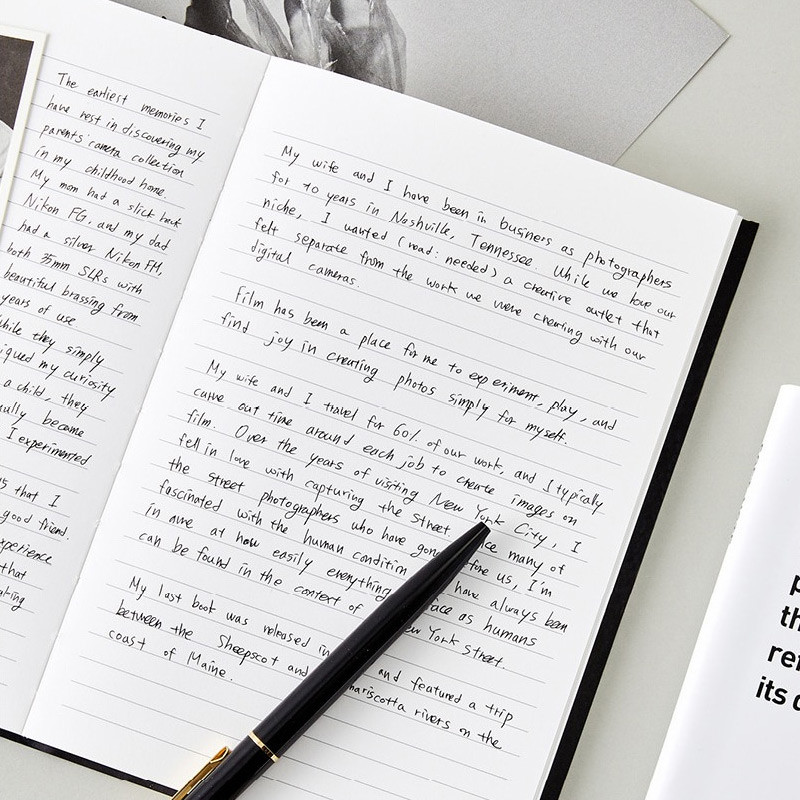 The earliest memories I
have rest in discovering my
parents' camera collection
in my childhood home.
My mom had a slick back
Nikon FG, and my dad
had a silver Nikon FM,
both 35mm SLRs with
beautiful brassing from
years of use
hile they simply
iqued my curiosity
a child, they
ually became
I experimented
that I
good friend.
xperience
that
aking
My wife and I have been in business as photographers
for 10 years in Nashville, Tennessee. While we love our
niche, I wanted (read: needed) a creative outlet that
felt separate from the work we were creating with our
digital cameras.
Film has been a place for me to experiment, play, and
find joy in creating photos simply for myself.
My wife and I travel for 60% of our work, and I typically
carve out time around each job to create images on
film. Over the years of visiting New York City, I
fell in love with capturing the street nce many of
the street photographers who have gon fore us, I'm
fascinated with the human condition have always been
in awe at how easily everything face as humans
can be found in the context of ew York Street.
My last book was released in and featured a trip
between the Sheepscot and mariscotta rivers on the
coast of Maine.
p
th
ref
its